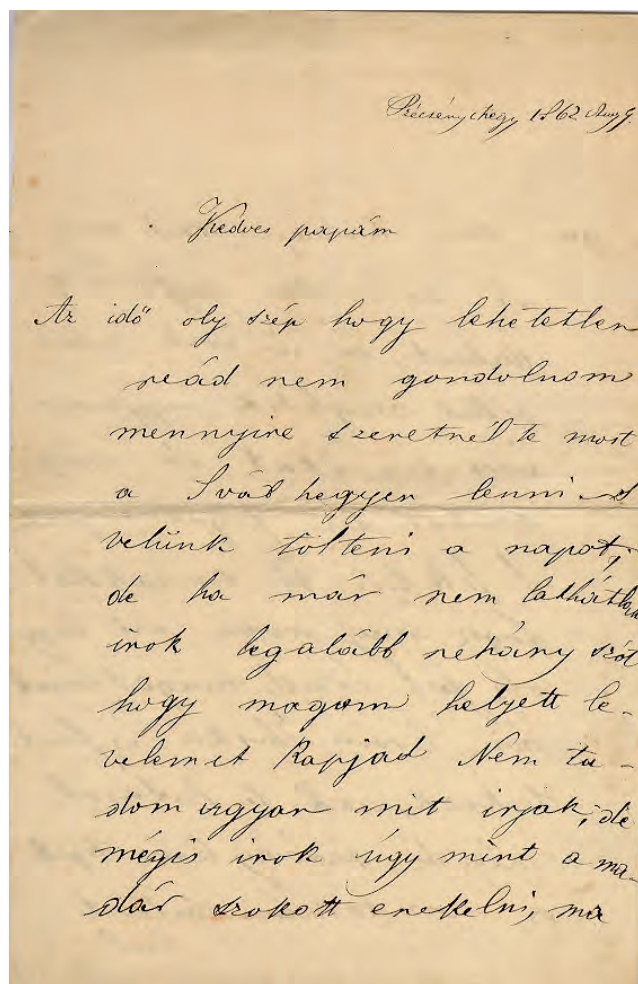 Szécsényhegy 1862 Aug 9.
Kedves papám
Az idő oly szép hogy lehetetlen
reád nem gondolnom
mennyire szeretnél te most
a Sváb hegyen lenni s
velünk tölteni a napot;
de ha már nem láthatlak
irok legalább nehány szót
hogy magam helyett le-
velemet kapjad Nem tu-
dom ugyan mit irjak; de
mégis irok úgy mint a ma-
dár szokott enekelni, ma